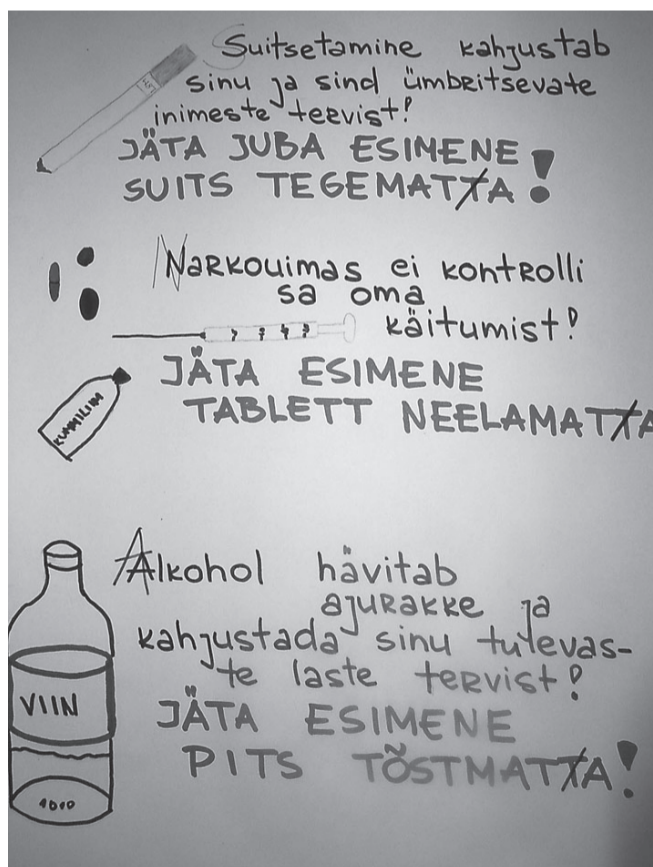 Suitsetamine kahjustab
sinu ja sind ümbritsevate
inimeste tervist!
JÄTA JUBA ESIMENE
SUITS TEGEMATTA!
Narkouimas ei kontrolli
sa oma
käitumist!
JÄTA ESIMENE
TABLETT NEELAMATTA
KUMMILIIM
Alkohol hävitab
ajurakke ja
kahjustada sinu tulevas-
te laste tervist!
VIIN
JÄTA ESIMENE
PITS TÕSTMATTA!